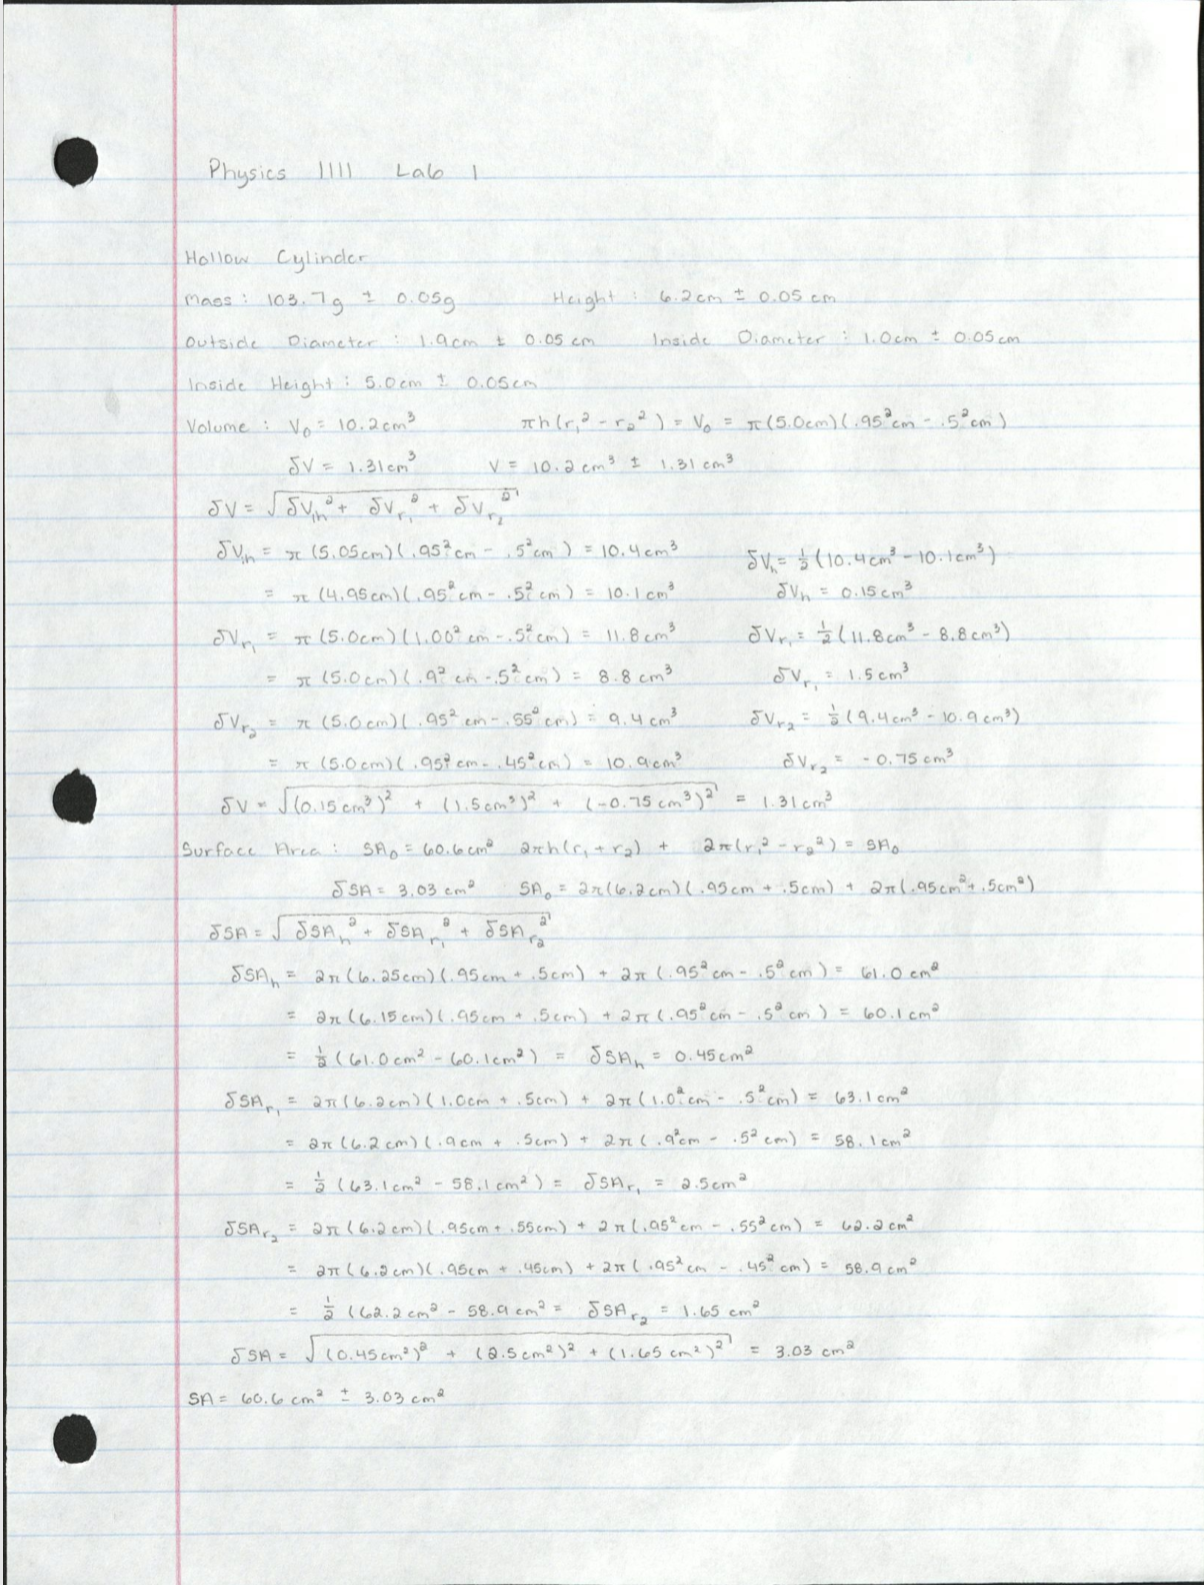 Physics 1111 Lab 1
Hollow Cylinder
Mass: 103.7g ± 0.05g Height: 6.2cm ± 0.05 cm
Outside Diameter: 1.9cm ± 0.05 cm Inside Diameter: 1.0cm ± 0.05cm
Inside Height: 5.0cm ± 0.05cm
Volume: V₀ = 10.2cm³ πh(r₁² - r₂²) = V₀ = π(5.0cm)(.95²cm - .5²cm)
δV = 1.31cm³ V = 10.2cm³ ± 1.31cm³
δV = √(δV_h² + δV_r₁² + δV_r₂²)
δV_h = π(5.05cm)(.95²cm - .5²cm) = 10.4cm³ δV_h = ½(10.4cm³ - 10.1cm³)
= π(4.95cm)(.95²cm - .5²cm) = 10.1cm³ δV_h = 0.15cm³
δV_r₁ = π(5.0cm)(1.00²cm - .5²cm) = 11.8cm³ δV_r₁ = ½(11.8cm³ - 8.8cm³)
= π(5.0cm)(.9²cm - .5²cm) = 8.8cm³ δV_r₁ = 1.5cm³
δV_r₂ = π(5.0cm)(.95²cm - .55²cm) = 9.4cm³ δV_r₂ = ½(9.4cm³ - 10.9cm³)
= π(5.0cm)(.95²cm - .45²cm) = 10.9cm³ δV_r₂ = -0.75cm³
δV = √((0.15cm³)² + (1.5cm³)² + (-0.75cm³)²) = 1.31cm³
Surface Area: SA₀ = 60.6cm² 2πh(r₁ + r₂) + 2π(r₁² - r₂²) = SA₀
δSA = 3.03cm² SA₀ = 2π(6.2cm)(.95cm + .5cm) + 2π(.95cm² + .5cm²)
δSA = √(δSA_h² + δSA_r₁² + δSA_r₂²)
δSA_h = 2π(6.25cm)(.95cm + .5cm) + 2π(.95²cm - .5²cm) = 61.0cm²
= 2π(6.15cm)(.95cm + .5cm) + 2π(.95²cm - .5²cm) = 60.1cm²
= ½(61.0cm² - 60.1cm²) = δSA_h = 0.45cm²
δSA_r₁ = 2π(6.2cm)(1.0cm + .5cm) + 2π(1.0²cm - .5²cm) = 63.1cm²
= 2π(6.2cm)(.9cm + .5cm) + 2π(.9²cm - .5²cm) = 58.1cm²
= ½(63.1cm² - 58.1cm²) = δSA_r₁ = 2.5cm²
δSA_r₂ = 2π(6.2cm)(.95cm + .55cm) + 2π(.95²cm - .55²cm) = 62.2cm²
= 2π(6.2cm)(.95cm + .45cm) + 2π(.95²cm - .45²cm) = 58.9cm²
= ½(62.2cm² - 58.9cm² = δSA_r₂ = 1.65cm²
δSA = √((0.45cm²)² + (2.5cm²)² + (1.65cm²)²) = 3.03cm²
SA = 60.6cm² ± 3.03cm²